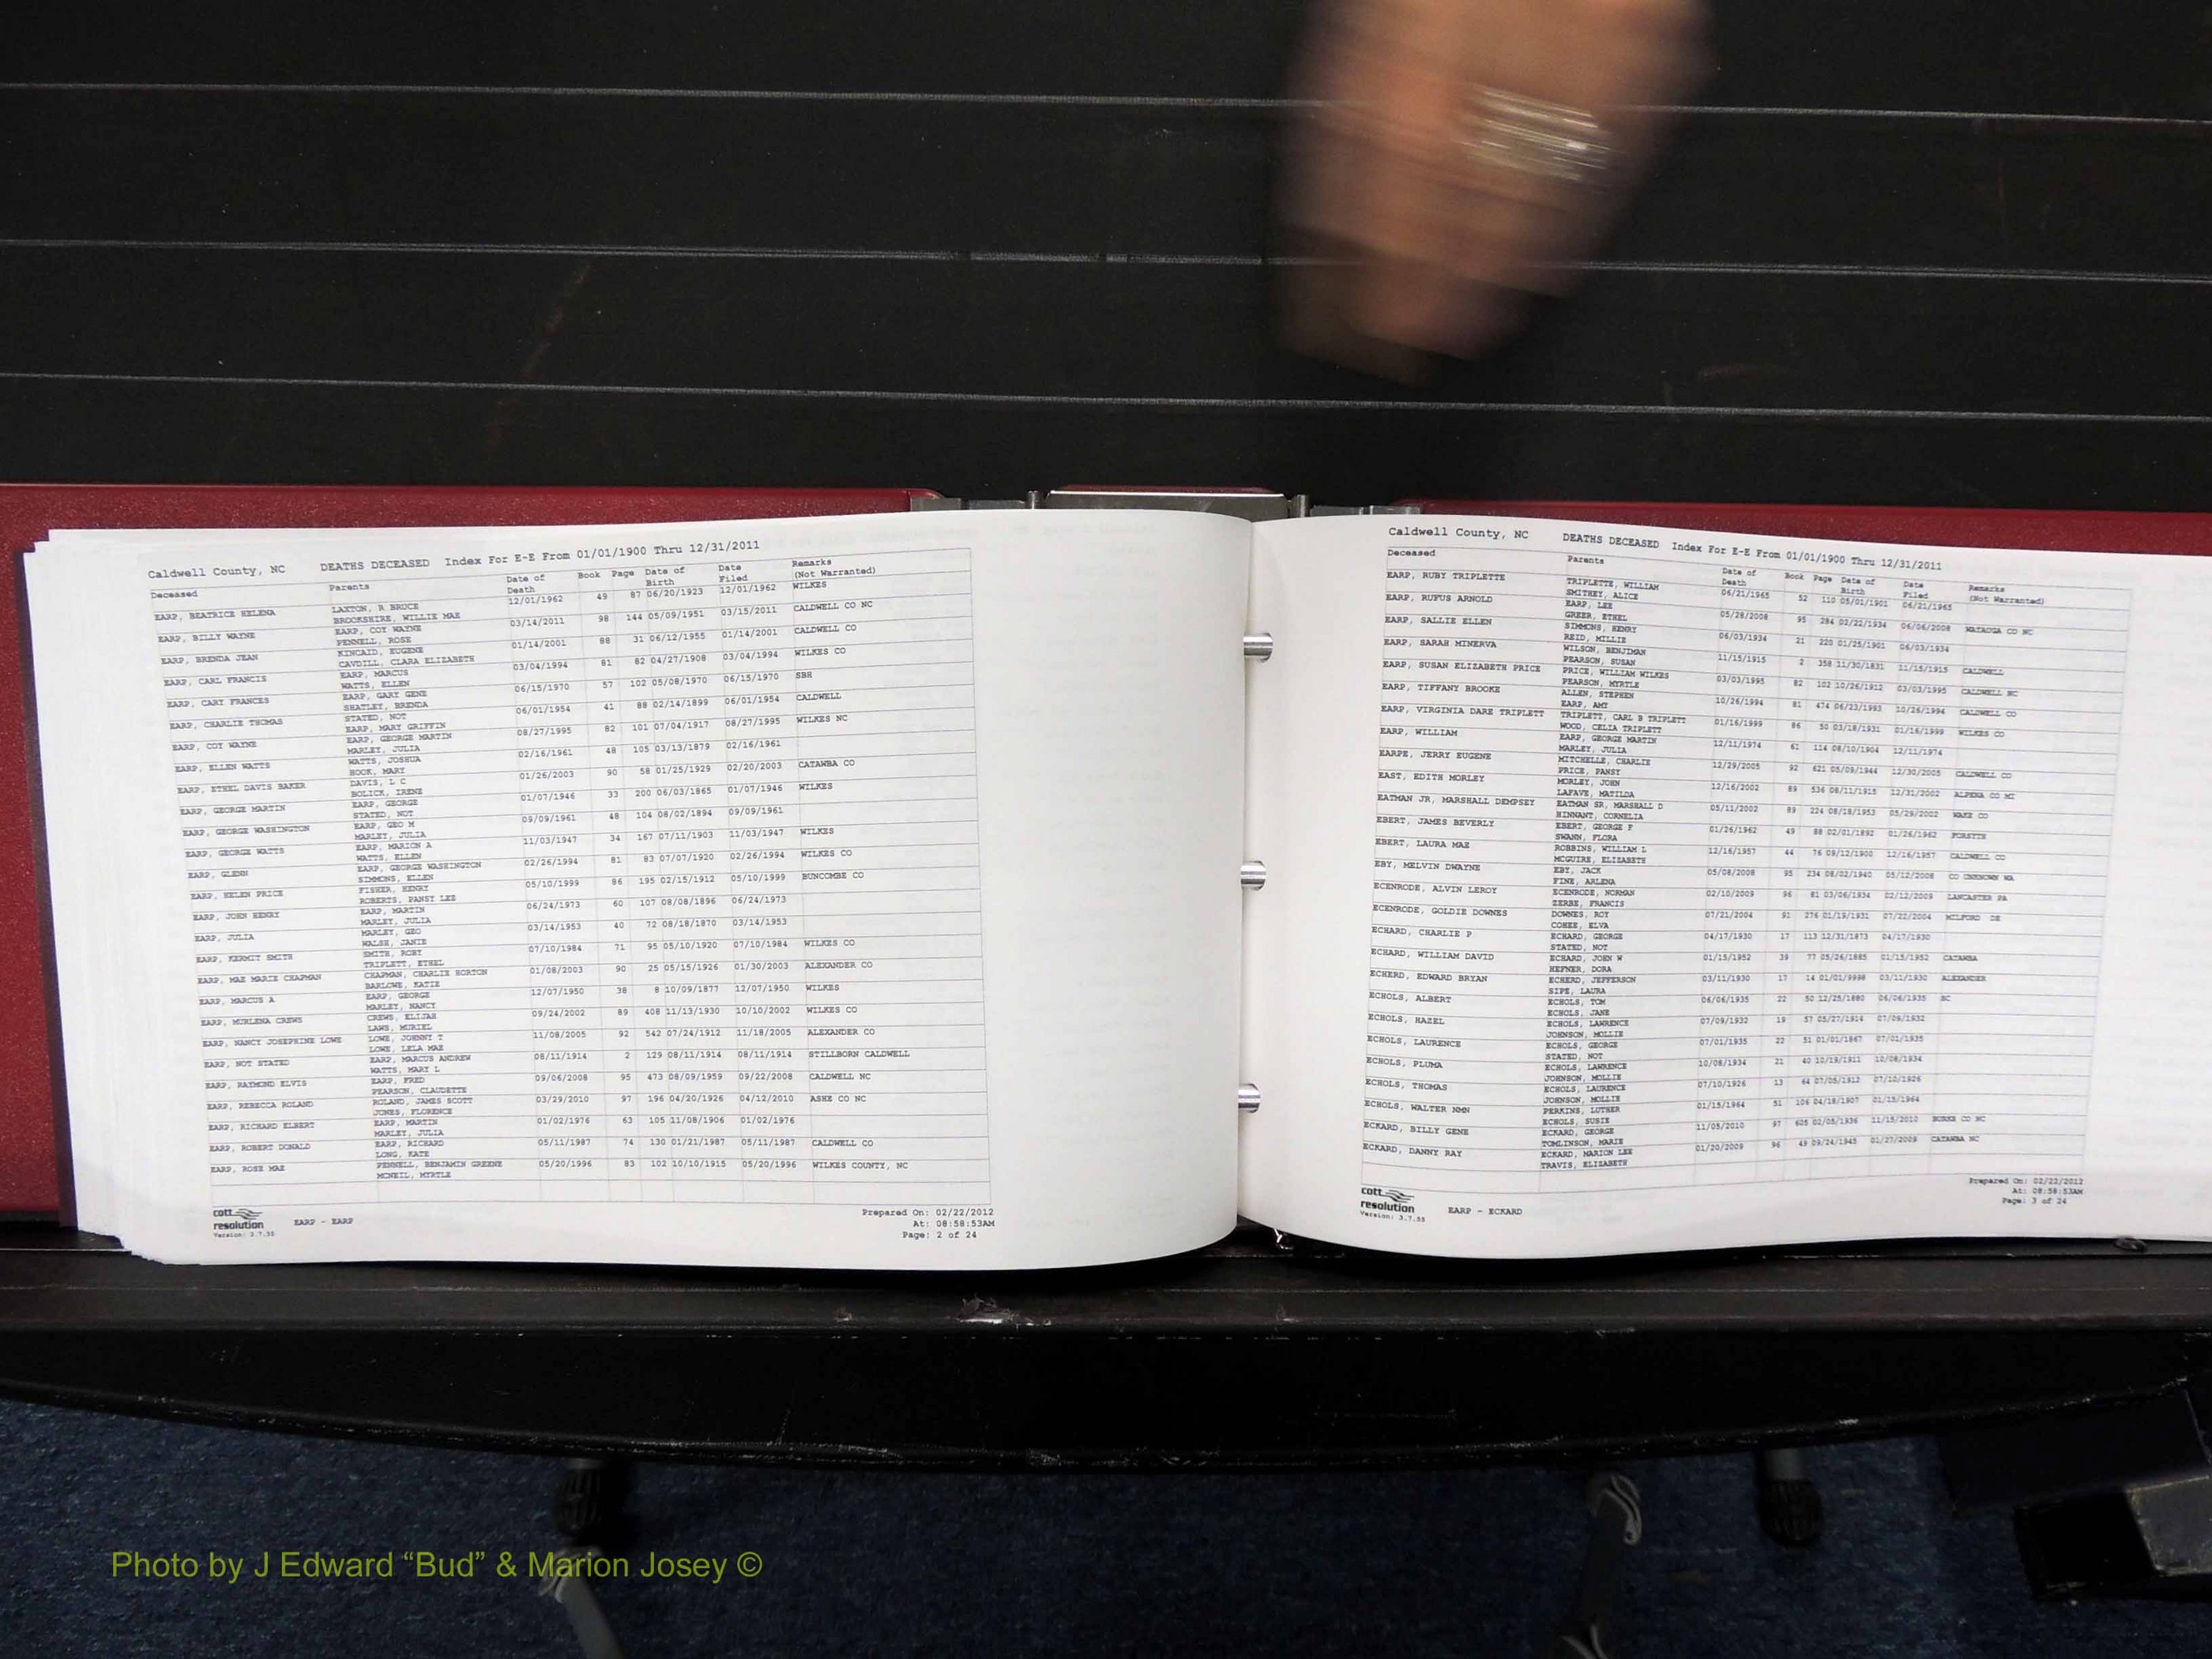 Caldwell County, NC DEATHS DECEASED Index For E-E From 01/01/1900 Thru 12/31/2011
Deceased Parents Date of Death Book Page Date of Birth Date Filed Remarks (Not Warranted)
EARP, BEATRICE HELENA LAXTON, R BRUCE 12/01/1962 49 87 06/20/1923 12/01/1962 WILKES
BROOKSHIRE, WILLIE MAE
EARP, BILLY WAYNE EARP, COY WAYNE 03/14/2011 98 144 05/09/1951 03/15/2011 CALDWELL CO NC
PENNELL, ROSE
EARP, BRENDA JEAN KINCAID, EUGENE 01/14/2001 88 31 06/12/1955 01/14/2001 CALDWELL CO
CAVDILL, CLARA ELIZABETH
EARP, CARL FRANCIS EARP, MARCUS 03/04/1994 81 82 04/27/1908 03/04/1994 WILKES CO
WATTS, ELLEN
EARP, CARY FRANCES EARP, GARY GENE 06/15/1970 57 102 05/08/1970 06/15/1970 SBH
SHATLEY, BRENDA
EARP, CHARLIE THOMAS STATED, NOT 06/01/1954 41 88 02/14/1899 06/01/1954 CALDWELL
EARP, MARY GRIFFIN
EARP, COY WAYNE EARP, GEORGE MARTIN 08/27/1995 82 101 07/04/1917 08/27/1995 WILKES NC
MARLEY, JULIA
EARP, ELLEN WATTS WATTS, JOSHUA 02/16/1961 48 105 03/13/1879 02/16/1961
HOOK, MARY
EARP, ETHEL DAVIS BAKER DAVIS, L C 01/26/2003 90 58 01/25/1929 02/20/2003 CATAWBA CO
BOLICK, IRENE
EARP, GEORGE MARTIN EARP, GEORGE 01/07/1946 33 200 06/03/1865 01/07/1946 WILKES
STATED, NOT
EARP, GEORGE WASHINGTON EARP, GEO M 09/09/1961 48 104 08/02/1894 09/09/1961
MARLEY, JULIA
EARP, GEORGE WATTS EARP, MARION A 11/03/1947 34 167 07/11/1903 11/03/1947 WILKES
WATTS, ELLEN
EARP, GLENN EARP, GEORGE WASHINGTON 02/26/1994 81 83 07/07/1920 02/26/1994 WILKES CO
SIMMONS, ELLEN
EARP, HELEN PRICE FISHER, HENRY 05/10/1999 86 195 02/15/1912 05/10/1999 BUNCOMBE CO
ROBERTS, PANSY LEE
EARP, JOHN HENRY EARP, MARTIN 06/24/1973 60 107 08/08/1896 06/24/1973
MARLEY, JULIA
EARP, JULIA MARLEY, GEO 03/14/1953 40 72 08/18/1870 03/14/1953
WALSH, JANIE
EARP, KERMIT SMITH SMITH, ROBY 07/10/1984 71 95 05/10/1920 07/10/1984 WILKES CO
TRIPLETT, ETHEL
EARP, MAE MARIE CHAPMAN CHAPMAN, CHARLIE HORTON 01/08/2003 90 25 05/15/1926 01/30/2003 ALEXANDER CO
BARLOWE, KATIE
EARP, MARCUS A EARP, GEORGE 12/07/1950 38 8 10/09/1877 12/07/1950 WILKES
MARLEY, NANCY
EARP, MURLENA CREWS CREWS, ELIJAH 09/24/2002 89 408 11/13/1930 10/10/2002 WILKES CO
LAWS, MURIEL
EARP, NANCY JOSEPHINE LOWE LOWE, JOHNNY T 11/08/2005 92 542 07/24/1912 11/18/2005 ALEXANDER CO
LOWE, LELA MAE
EARP, NOT STATED EARP, MARCUS ANDREW 08/11/1914 2 129 08/11/1914 08/11/1914 STILLBORN CALDWELL
WATTS, MARY L
EARP, RAYMOND ELVIS EARP, FRED 09/06/2008 95 473 08/09/1959 09/22/2008 CALDWELL NC
PEARSON, CLAUDETTE
EARP, REBECCA ROLAND ROLAND, JAMES SCOTT 03/29/2010 97 196 04/20/1926 04/12/2010 ASHE CO NC
JONES, FLORENCE
EARP, RICHARD ELBERT EARP, MARTIN 01/02/1976 63 105 11/08/1906 01/02/1976
MARLEY, JULIA
EARP, ROBERT DONALD EARP, RICHARD 05/11/1987 74 130 01/21/1987 05/11/1987 CALDWELL CO
LONG, KATE
EARP, ROSE MAE PENNELL, BENJAMIN GREENE 05/20/1996 83 102 10/10/1915 05/20/1996 WILKES COUNTY, NC
MCNEIL, MYRTLE
cott resolution
Version: 3.7.55
EARP - EARP
Prepared On: 02/22/2012
At: 08:58:53AM
Page: 2 of 24
Caldwell County, NC DEATHS DECEASED Index For E-E From 01/01/1900 Thru 12/31/2011
Deceased Parents Date of Death Book Page Date of Birth Date Filed Remarks (Not Warranted)
EARP, RUBY TRIPLETTE TRIPLETTE, WILLIAM 06/21/1965 52 110 05/01/1901 06/21/1965
SMITHEY, ALICE
EARP, RUFUS ARNOLD EARP, LEE 05/28/2008 95 284 02/22/1934 06/06/2008 WATAOGA CO NC
GREER, ETHEL
EARP, SALLIE ELLEN SIMMONS, HENRY 06/03/1934 21 220 01/25/1901 06/03/1934
REID, MILLIE
EARP, SARAH MINERVA WILSON, BENJIMAN 11/15/1915 2 358 11/30/1831 11/15/1915 CALDWELL
PEARSON, SUSAN
EARP, SUSAN ELIZABETH PRICE PRICE, WILLIAM WILKES 03/03/1995 82 102 10/26/1912 03/03/1995 CALDWELL NC
PEARSON, MYRTLE
EARP, TIFFANY BROOKE ALLEN, STEPHEN 10/26/1994 81 474 06/23/1993 10/26/1994 CALDWELL CO
EARP, AMY
EARP, VIRGINIA DARE TRIPLETT TRIPLETT, CARL B TRIPLETT 01/16/1999 86 50 03/18/1931 01/16/1999 WILKES CO
WOOD, CELIA TRIPLETT
EARP, WILLIAM EARP, GEORGE MARTIN 12/11/1974 61 114 08/10/1904 12/11/1974
MARLEY, JULIA
EARPE, JERRY EUGENE MITCHELLE, CHARLIE 12/29/2005 92 621 05/09/1944 12/30/2005 CALDWELL CO
PRICE, PANSY
EAST, EDITH MORLEY MORLEY, JOHN 12/16/2002 89 536 08/11/1915 12/31/2002 ALPENA CO MI
LAFAVE, MATILDA
EATMAN JR, MARSHALL DEMPSEY EATMAN SR, MARSHALL D 05/11/2002 89 224 08/18/1953 05/29/2002 WAKE CO
HINNANT, CORNELIA
EBERT, JAMES BEVERLY EBERT, GEORGE F 01/26/1962 49 88 02/01/1892 01/26/1962 FORSYTH
SWANN, FLORA
EBERT, LAURA MAE ROBBINS, WILLIAM L 12/16/1957 44 76 09/12/1900 12/16/1957 CALDWELL CO
MCGUIRE, ELIZABETH
EBY, MELVIN DWAYNE EBY, JACK 05/08/2008 95 234 08/02/1940 05/12/2008 CO UNKNOWN WA
FINE, ARLENA
ECENRODE, ALVIN LEROY ECENRODE, NORMAN 02/10/2009 96 81 03/06/1934 02/12/2009 LANCASTER PA
ZERBE, FRANCIS
ECENRODE, GOLDIE DOWNES DOWNES, ROY 07/21/2004 91 276 01/19/1931 07/22/2004 MILFORD DE
COHEE, ELVA
ECHARD, CHARLIE P ECHARD, GEORGE 04/17/1930 17 113 12/31/1873 04/17/1930
STATED, NOT
ECHARD, WILLIAM DAVID ECHARD, JOHN W 01/15/1952 39 77 05/26/1885 01/15/1952 CATAWBA
HEFNER, DORA
ECHERD, EDWARD BRYAN ECHERD, JEFFERSON 03/11/1930 17 14 01/01/9998 03/11/1930 ALEXANDER
SIPE, LAURA
ECHOLS, ALBERT ECHOLS, TOM 06/06/1935 22 50 12/25/1880 06/06/1935 SC
ECHOLS, JANE
ECHOLS, HAZEL ECHOLS, LAWRENCE 07/09/1932 19 57 05/27/1914 07/09/1932
JOHNSON, MOLLIE
ECHOLS, LAURENCE ECHOLS, GEORGE 07/01/1935 22 51 01/01/1867 07/01/1935
STATED, NOT
ECHOLS, PLUMA ECHOLS, LAWRENCE 10/08/1934 21 40 10/19/1911 10/08/1934
JOHNSON, MOLLIE
ECHOLS, THOMAS ECHOLS, LAURENCE 07/10/1926 13 64 07/05/1912 07/10/1926
JOHNSON, MOLLIE
ECHOLS, WALTER NMN PERKINS, LUTHER 01/15/1964 51 106 04/18/1907 01/15/1964
ECHOLS, SUSIE
ECKARD, BILLY GENE ECKARD, GEORGE 11/05/2010 97 605 02/05/1936 11/15/2010 BURKE CO NC
TOMLINSON, MARIE
ECKARD, DANNY RAY ECKARD, MARION LEE 01/20/2009 96 49 09/24/1945 01/27/2009 CATAWBA NC
TRAVIS, ELIZABETH
cott resolution
Version: 3.7.55
EARP - ECKARD
Prepared On: 02/22/2012
At: 08:58:53AM
Page: 3 of 24
Photo by J Edward “Bud” & Marion Josey ©